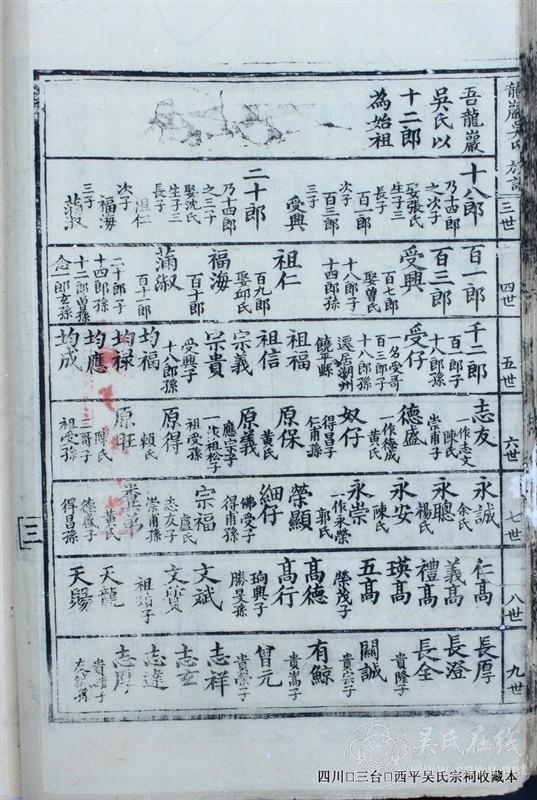 龍巖吳氏族譜
三世
四世
五世
六世
七世
八世
九世
吾龍巖
吳氏以
十二郎
為始祖
十八郎
乃十四郎
之次子
娶張氏
生子三
長子
百一郎
次子
百三郎
三子
受興
二十郎
乃十四郎
之三子
娶沈氏
生子三
長子
祖仁
次子
福海
三子
蒲淑
百一郎
百三郎
受興
百七郎
娶曾氏
十八郎子
十四郎孫
祖仁
百九郎
娶邱氏
福海
百十郎
蒲淑
百十一郎
二十郎子
十四郎孫
十二郎曾孫
念一郎玄孫
千二郎
百一郎子
十八郎孫
受仔
一名受哥
百三郎子
十八郎孫
遷居潮州
饒平縣
祖福
祖信
宗義
宗貴
受興子
十八郎孫
均福
均祿
均應
均成
志友
一作志文
陳氏
崇甫子
德盛
一作德成
黃氏
奴仔
得昌子
仁甫孫
原保
黃氏
原義
應宗子
一作祖松子
祖受孫
原得
賴氏
原旺
陳氏
三哥子
祖受孫
永誠
余氏
永聰
楊氏
永安
陳氏
永崇
一作永榮
郭氏
榮顯
細仔
佛受子
得甫孫
宗福
盧氏
志友子
崇甫孫
黃氏
德盛子
得昌孫
仁高
義高
禮高
瑛高
五高
榮茂子
高德
高行
珣興子
勝旻孫
文斌
文質
祖頭子
天龍
天賜
長厚
長澄
長全
貴隆子
關誠
貴宗子
有鯨
貴嵩子
曾元
貴榮子
志祥
志玄
志達
志厚
三
吴氏在线
四川□三台□西平吴氏宗祠收藏本